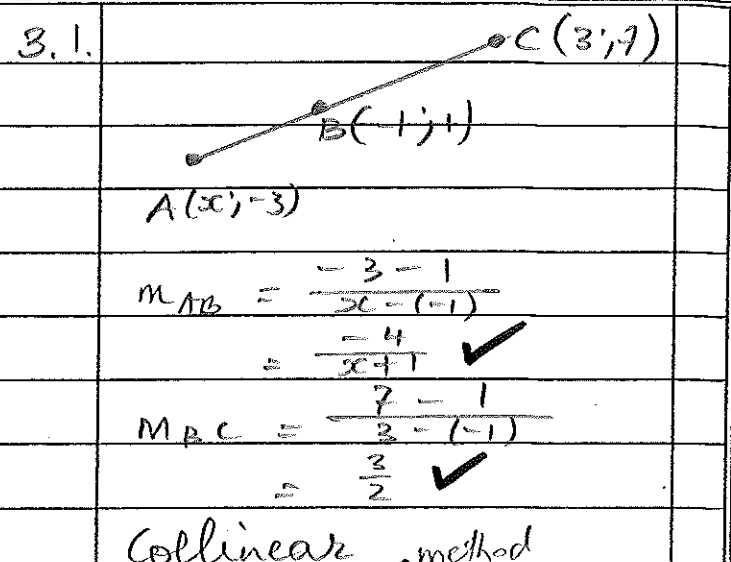 3.1.
C (3;7)
B(-1;1)
A(x;-3)
m AB = -3-1 / x-(-1)
= -4 / x+1 ✓
m BC = 7-1 / 3-(-1)
= 3/2 ✓
Collinear method